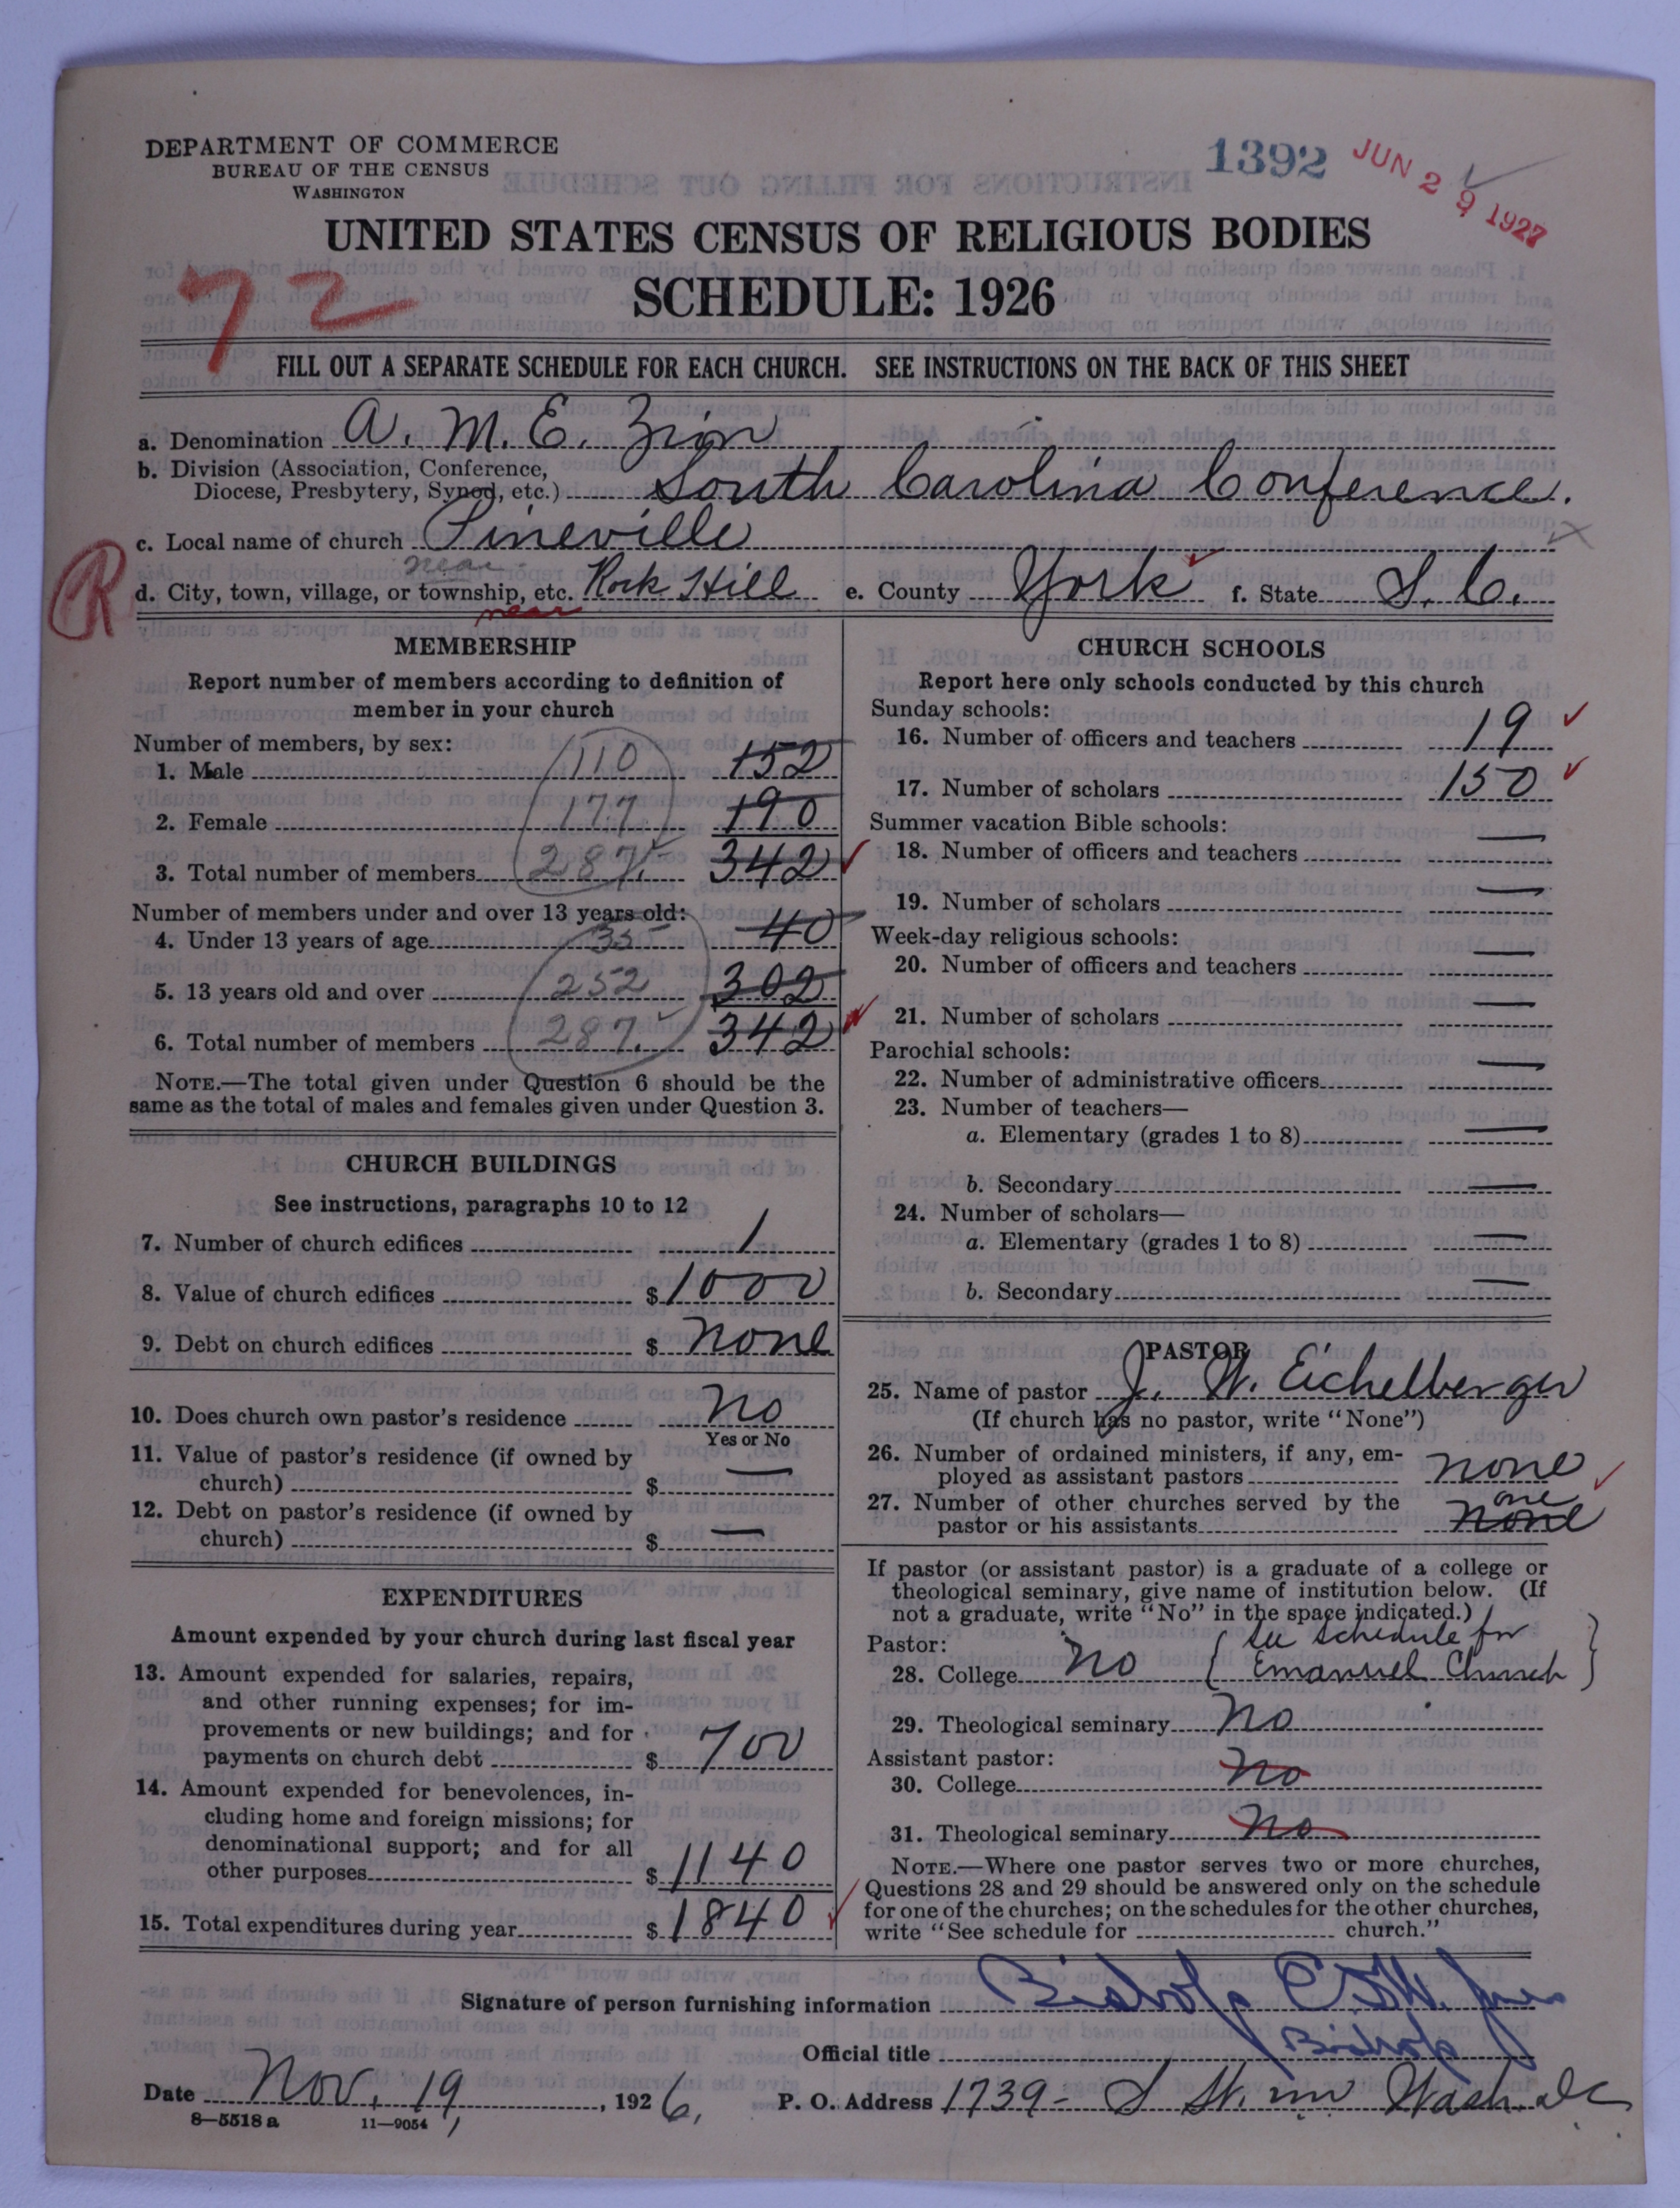 DEPARTMENT OF COMMERCE
BUREAU OF THE CENSUS
WASHINGTON
1392
JUN 29 1927
UNITED STATES CENSUS OF RELIGIOUS BODIES
SCHEDULE: 1926
72
FILL OUT A SEPARATE SCHEDULE FOR EACH CHURCH. SEE INSTRUCTIONS ON THE BACK OF THIS SHEET
a. Denomination A. M. E. Zion
b. Division (Association, Conference,
Diocese, Presbytery, Synod, etc.) South Carolina Conference.
c. Local name of church Pineville
near
R
d. City, town, village, or township, etc. Rock Hill e. County York f. State S. C.
near
MEMBERSHIP
Report number of members according to definition of
member in your church
Number of members, by sex:
1. Male 110 152
2. Female 177 190
3. Total number of members 287 342
Number of members under and over 13 years old:
4. Under 13 years of age 35 40
5. 13 years old and over 252 302
6. Total number of members 287 342
NOTE.—The total given under Question 6 should be the
same as the total of males and females given under Question 3.
CHURCH BUILDINGS
See instructions, paragraphs 10 to 12
7. Number of church edifices 1
8. Value of church edifices $ 1000
9. Debt on church edifices $ none
10. Does church own pastor's residence No
Yes or No
11. Value of pastor's residence (if owned by
church) $ —
12. Debt on pastor's residence (if owned by
church) $ —
EXPENDITURES
Amount expended by your church during last fiscal year
13. Amount expended for salaries, repairs,
and other running expenses; for im-
provements or new buildings; and for
payments on church debt $ 700
14. Amount expended for benevolences, in-
cluding home and foreign missions; for
denominational support; and for all
other purposes $ 1140
15. Total expenditures during year $ 1840
CHURCH SCHOOLS
Report here only schools conducted by this church
Sunday schools:
16. Number of officers and teachers 19
17. Number of scholars 150
Summer vacation Bible schools:
18. Number of officers and teachers —
19. Number of scholars —
Week-day religious schools:
20. Number of officers and teachers —
21. Number of scholars —
Parochial schools:
22. Number of administrative officers —
23. Number of teachers—
a. Elementary (grades 1 to 8) —
b. Secondary —
24. Number of scholars—
a. Elementary (grades 1 to 8) —
b. Secondary —
PASTOR
25. Name of pastor J. W. Eichelberger
(If church has no pastor, write "None")
26. Number of ordained ministers, if any, em-
ployed as assistant pastors none
27. Number of other churches served by the one
pastor or his assistants none
If pastor (or assistant pastor) is a graduate of a college or
theological seminary, give name of institution below. (If
not a graduate, write "No" in the space indicated.)
Pastor: (see schedule for
28. College No Emanuel Church)
29. Theological seminary No
Assistant pastor:
30. College No
31. Theological seminary No
NOTE.—Where one pastor serves two or more churches,
Questions 28 and 29 should be answered only on the schedule
for one of the churches; on the schedules for the other churches,
write "See schedule for church."
Signature of person furnishing information Bishop
Official title Bishop
Date Nov. 19, 1926, P. O. Address 1739 - S St. nw Wash. DC
8—5518a 11—9054